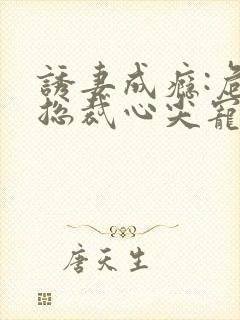 誘妻成癮:
揔裁心尖寵
唐天生